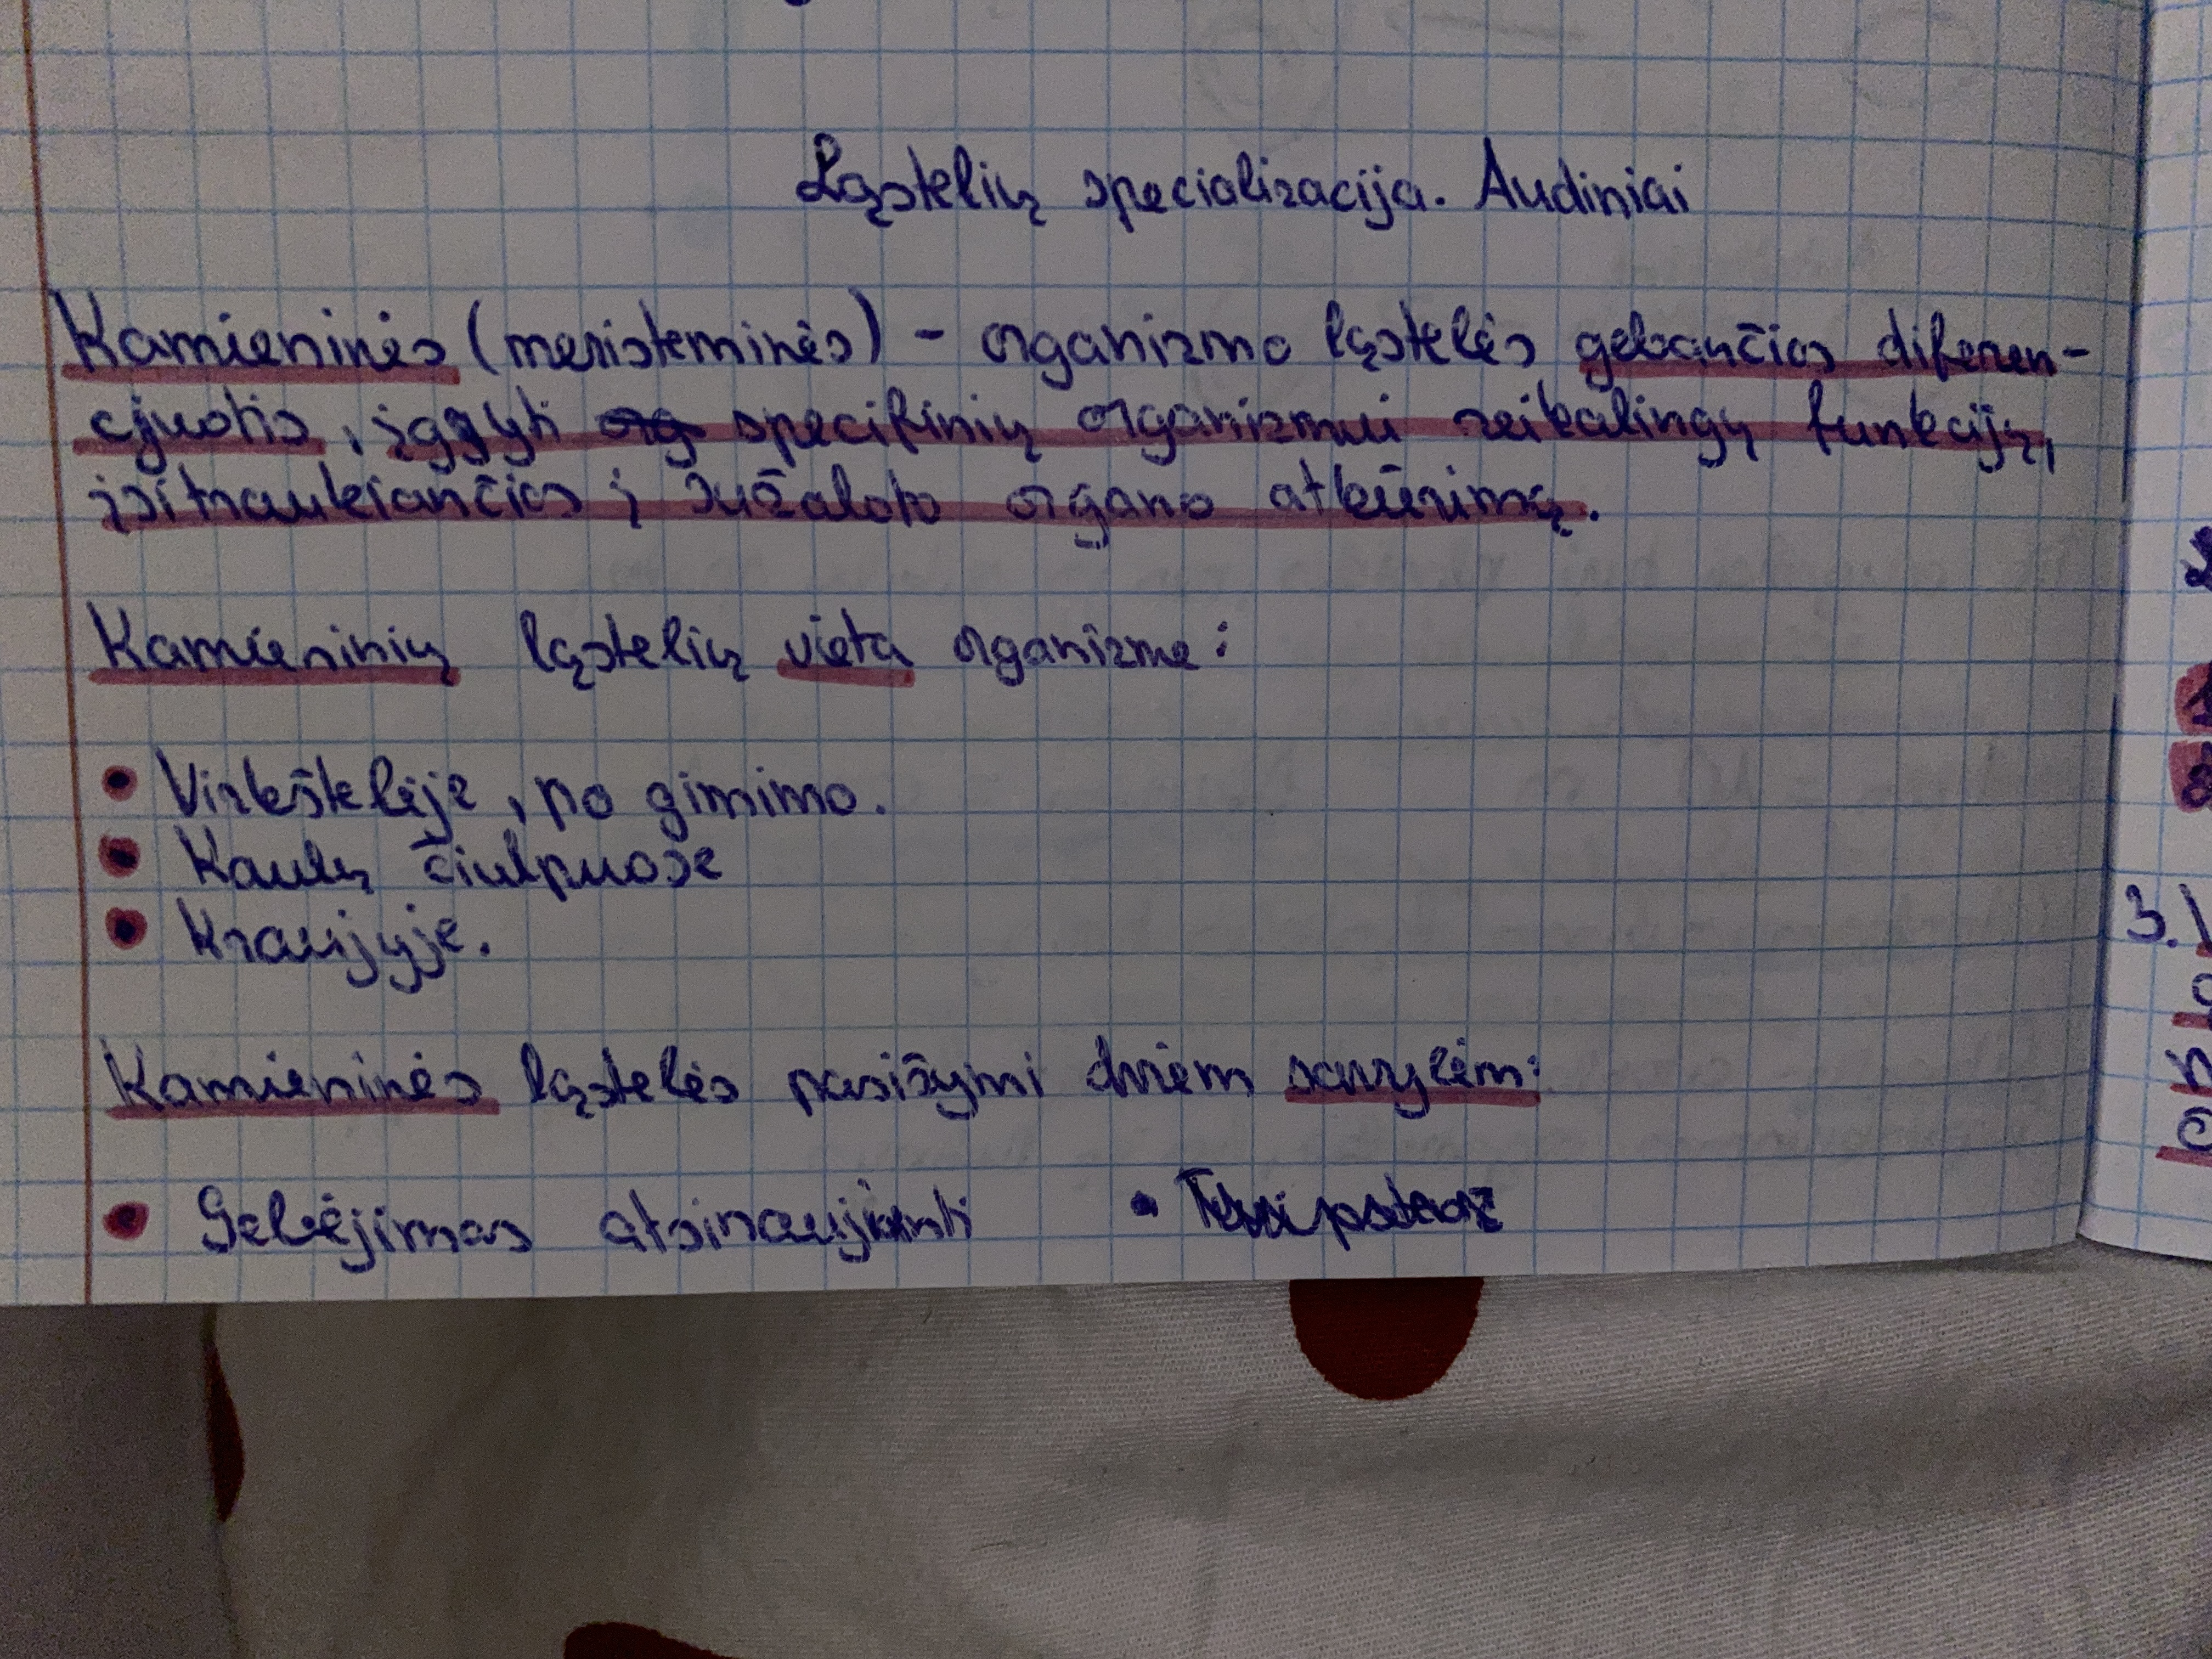 Ląstelių specializacija. Audiniai
Kamieninės (meristeminės) - organizmo ląstelės gebančios diferen-
cijuotis, įgyti specifinių organizmui reikalingų funkcijų,
įsitraukiančios į sužaloto organo atkūrimą.
Kamieninių ląstelių vieta organizme:
• Virkštelėje, po gimimo.
• Kaulų čiulpuose
• Kraujyje.
Kamieninės ląstelės pasižymi dviem savybėm:
• Gebėjimas atsinaujinti •
3.1